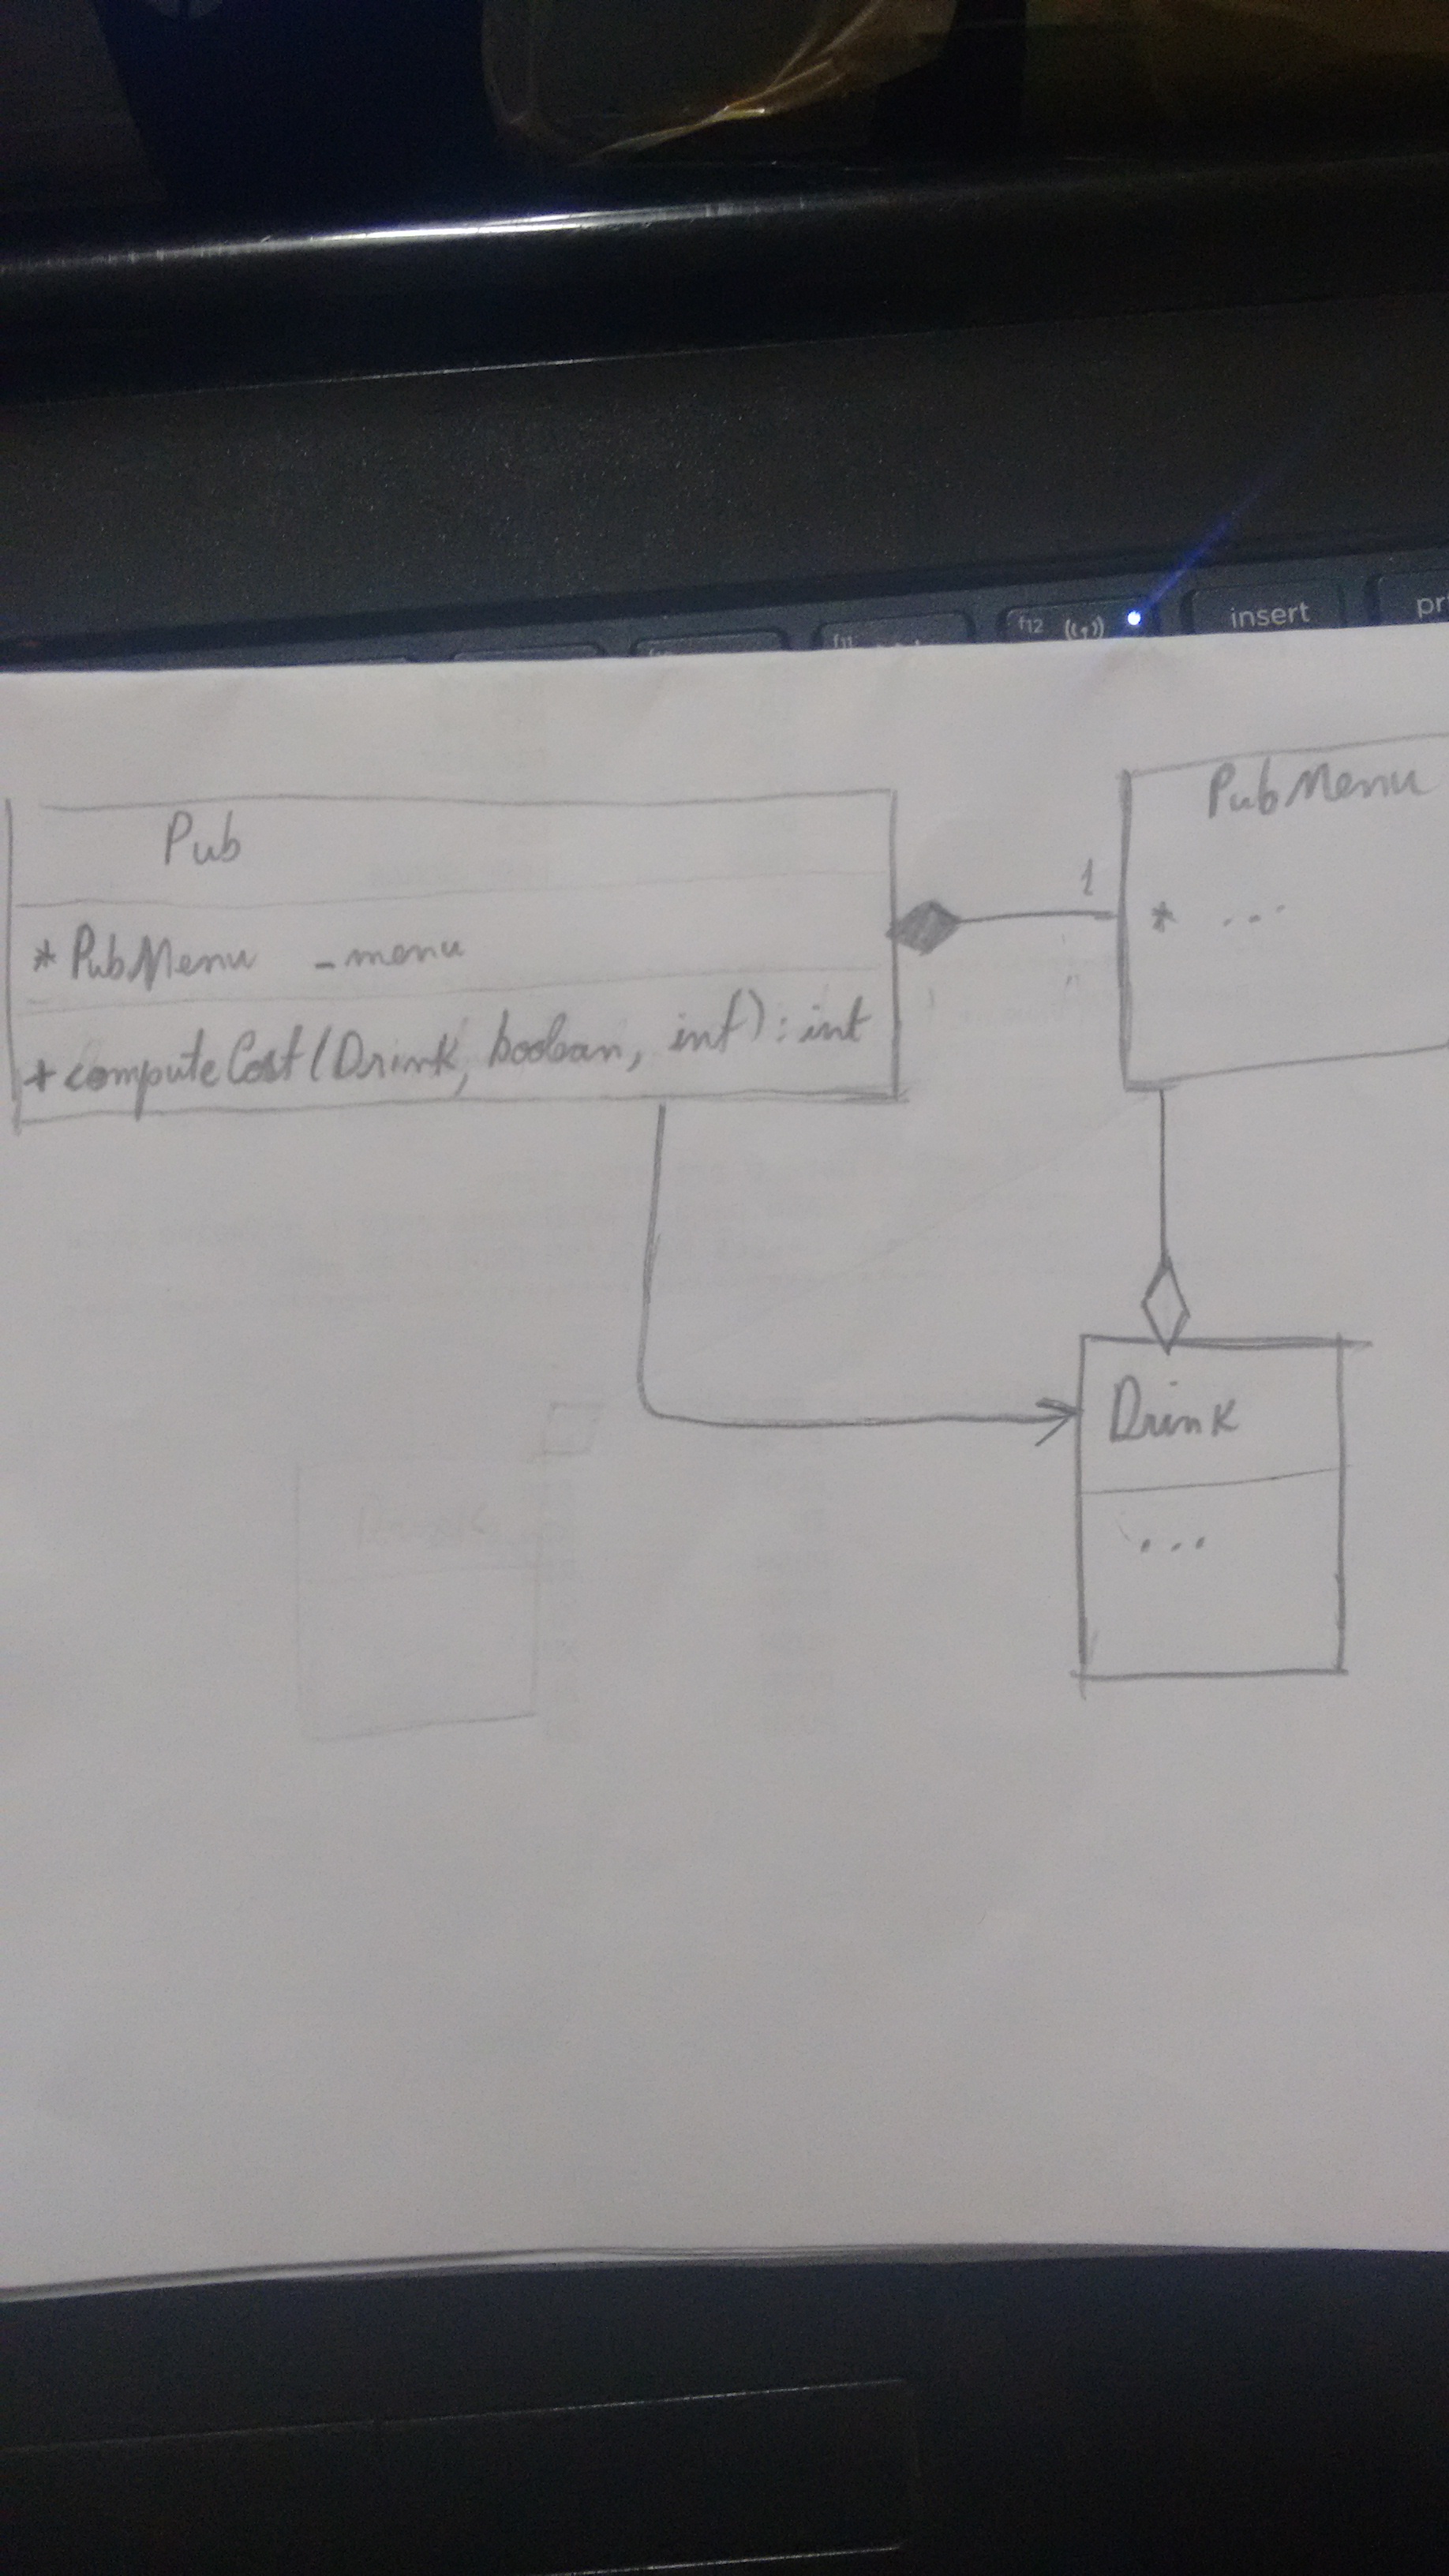 f11
f12
insert
Pub
* PubMenu _menu
+ computeCost(Drink, boolean, int): int
1
PubMenu
* ...
Drink
...